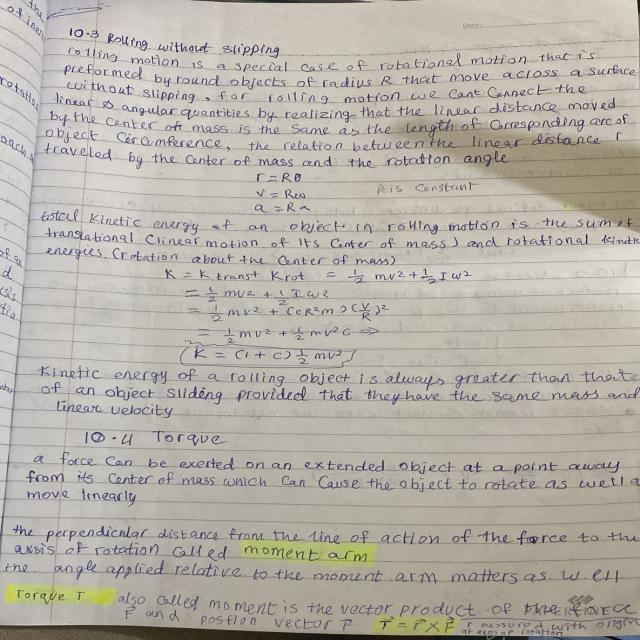 10.3 Rolling without slipping
rolling motion is a special case of rotational motion that is
preformed by round objects of radius R that move across a surface
without slipping, for rolling motion we cant connect the
linear & angular quantities by realizing that the linear distance moved
by the center of mass is the same as the length of corresponding arc of
object circumference, the relation between the linear distance r
traveled by the center of mass and the rotation angle
r = Rθ
v = Rω R is constant
a = Rα
total kinetic energy of an object in rolling motion is the sum of
translational (linear motion of its center of mass) and rotational kinetic
energies. (rotation about the center of mass)
K = K trans + K rot = 1/2 mv2 + 1/2 I ω2
= 1/2 mv2 + 1/2 I ω2
= 1/2 mv2 + (cR2m) (v/R)2
= 1/2 mv2 + 1/2 mv2 c ⇒
(K = (1 + c) 1/2 mv2)
Kinetic energy of a rolling object is always greater than that
of an object sliding provided that they have the same mass and
linear velocity
10.4 Torque
a force can be exerted on an extended object at a point away
from its center of mass which can cause the object to rotate as well a
move linearly
the perpendicular distance from the line of action of the force to the
axsis of rotation called moment arm
the angle applied relative to the moment arm matters as well
Torque T also called moment is the vector product of the force
F and postion vector r T = r x F r measured with origin
at axis of rotation